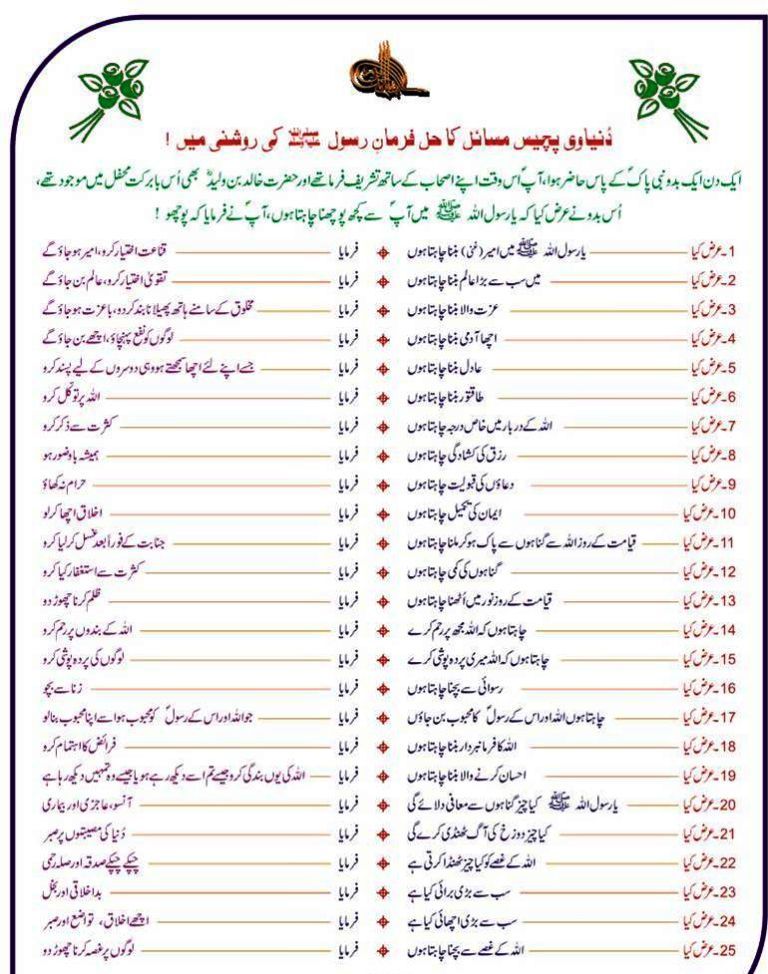 دُنیاوی پچیس مسائل کا حل فرمانِ رسول ﷺ کی روشنی میں !
ایک دن ایک بدو نبی پاکؐ کے پاس حاضر ہوا، آپؐ اُس وقت اپنے اصحاب کے ساتھ تشریف فرما تھے اور حضرت خالد بن ولیدؓ بھی اُس بابرکت محفل میں موجود تھے،
اُس بدو نے عرض کیا کہ یارسول اللہ ﷺ میں آپؐ سے کچھ پوچھنا چاہتا ہوں، آپؐ نے فرمایا کہ پوچھو !
1۔عرض کیا یارسول اللہ ﷺ میں امیر (غنی) بننا چاہتا ہوں فرمایا قناعت اختیار کرو، امیر ہو جاؤ گے
2۔عرض کیا میں سب سے بڑا عالم بننا چاہتا ہوں فرمایا تقویٰ اختیار کرو، عالم بن جاؤ گے
3۔عرض کیا عزت والا بننا چاہتا ہوں فرمایا مخلوق کے سامنے ہاتھ پھیلانا بند کر دو، باعزت ہو جاؤ گے
4۔عرض کیا اچھا آدمی بننا چاہتا ہوں فرمایا لوگوں کو نفع پہنچاؤ، اچھے بن جاؤ گے
5۔عرض کیا عادل بننا چاہتا ہوں فرمایا جسے اپنے لئے اچھا سمجھتے ہو وہی دوسروں کے لیے پسند کرو
6۔عرض کیا طاقتور بننا چاہتا ہوں فرمایا اللہ پر توکل کرو
7۔عرض کیا اللہ کے دربار میں خاص درجہ چاہتا ہوں فرمایا کثرت سے ذکر کرو
8۔عرض کیا رزق کی کشادگی چاہتا ہوں فرمایا ہمیشہ باوضو رہو
9۔عرض کیا دعاؤں کی قبولیت چاہتا ہوں فرمایا حرام نہ کھاؤ
10۔عرض کیا ایمان کی تکمیل چاہتا ہوں فرمایا اخلاق اچھا کرلو
11۔عرض کیا قیامت کے روز اللہ سے گناہوں سے پاک ہو کر ملنا چاہتا ہوں فرمایا جنابت کے فوراً بعد غسل کر لیا کرو
12۔عرض کیا گناہوں کی کمی چاہتا ہوں فرمایا کثرت سے استغفار کیا کرو
13۔عرض کیا قیامت کے روز نور میں اُٹھنا چاہتا ہوں فرمایا ظلم کرنا چھوڑ دو
14۔عرض کیا چاہتا ہوں کہ اللہ مجھ پر رحم کرے فرمایا اللہ کے بندوں پر رحم کرو
15۔عرض کیا چاہتا ہوں کہ اللہ میری پردہ پوشی کرے فرمایا لوگوں کی پردہ پوشی کرو
16۔عرض کیا رسوائی سے بچنا چاہتا ہوں فرمایا زنا سے بچو
17۔عرض کیا چاہتا ہوں اللہ اور اس کے رسولؐ کا محبوب بن جاؤں فرمایا جو اللہ اور اس کے رسولؐ کو محبوب ہو اسے اپنا محبوب بنالو
18۔عرض کیا اللہ کا فرمانبردار بننا چاہتا ہوں فرمایا فرائض کا اہتمام کرو
19۔عرض کیا احسان کرنے والا بننا چاہتا ہوں فرمایا اللہ کی یوں بندگی کرو جیسے تم اسے دیکھ رہے ہو یا جیسے وہ تمہیں دیکھ رہا ہے
20۔عرض کیا یارسول اللہ ﷺ کیا چیز گناہوں سے معافی دلائے گی فرمایا آنسو، عاجزی اور بیماری
21۔عرض کیا کیا چیز دوزخ کی آگ ٹھنڈی کرے گی فرمایا دُنیا کی مصیبتوں پر صبر
22۔عرض کیا اللہ کے غصے کو کیا چیز ٹھنڈا کرتی ہے فرمایا چپکے چپکے صدقہ اور صلہ رحمی
23۔عرض کیا سب سے بڑی برائی کیا ہے فرمایا بداخلاقی اور بخل
24۔عرض کیا سب سے بڑی اچھائی کیا ہے فرمایا اچھے اخلاق، تواضع اور صبر
25۔عرض کیا اللہ کے غصے سے بچنا چاہتا ہوں فرمایا لوگوں پر غصہ کرنا چھوڑ دو